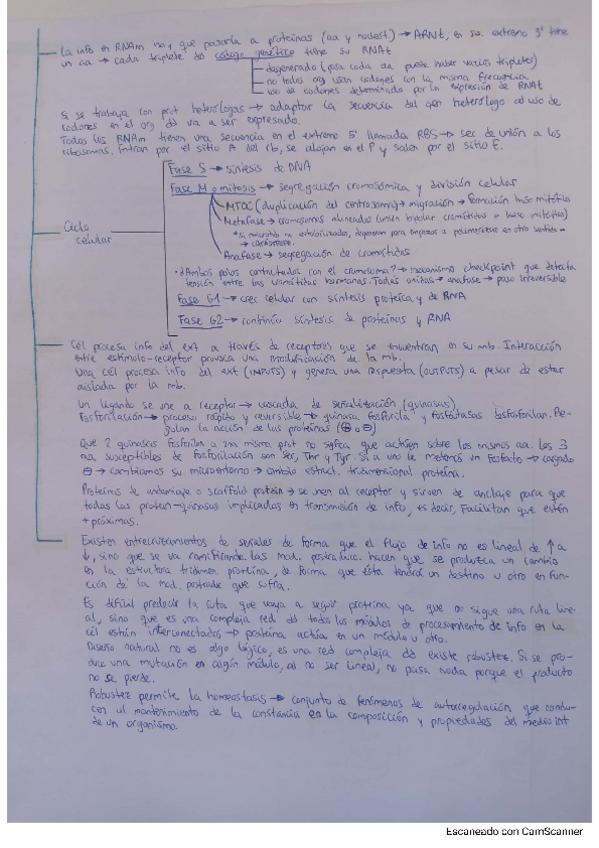 La info en RNAm hay que pasarla a proteínas (aa y nodest) → ARNt, en su extremo 3' tiene
un aa → cada triplete dd código genético tiene su RNAt
degenerado (para cada aa puede haber varios tripletes)
no todos org usan codones con la misma frecuencia
uso de codones determinado por la expresión de RNAt
Si se trabaja con prot heterólogas → adaptar la secuencia del gen heterólogo al uso de
codones en el org dd va a ser expresado.
Todos los RNAm tienen una secuencia en el extremo 5' llamada RBS → sec de unión a los
ribosomas. Entran por el sitio A del rb, se alojan en el P y salen por el sitio E.
Ciclo
celular
Fase S → síntesis de DNA
Fase M o mitosis → segregación cromosómica y división celular
MTOC (duplicación del centrosoma) → migración → formación huso mitótico
Metafase → cromosomas alineados (unión bipolar cromátidas a huso mitótico)
*Si microtúb no estabilizados, despolim para empezar a polimerizar en otro sentido →
→ catástrofe.
Anafase → segregación de cromátidas
·¿Ambos polos contactados con el cromosoma? → mecanismo checkpoint que detecta
tensión entre las cromátidas hermanas. Todas unidas → anafase → paso irreversible
Fase G1 → crec celular con síntesis proteica y de RNA
Fase G2 → continúa síntesis de proteínas y RNA
Cél procesa info del ext a través de receptores que se encuentran en su mb. Interacción
entre estímulo-receptor provoca una modificación de la mb.
Una cél procesa info del ext (INPUTS) y genera una respuesta (OUTPUTS) a pesar de estar
aislada por la mb.
Un ligando se une a receptor → cascada de señalización (quinasas)
Fosforilación → proceso rápido y reversible → quinasa fosforila y fosfatasas desfosforilan. Re-
gulan la acción de las proteínas (⊕ o ⊖)
Que 2 quinasas fosforilen a una misma prot no signfca que actúen sobre los mismos aa. Los 3
aa susceptibles de fosforilación son Ser, Thr y Tyr. Si a uno le metemos un fosfato → cargado
⊖ → cambiamos su microentorno → cambio estruct. tridimensional proteína.
Proteínas de andamiaje o scaffold protein → se unen al receptor y sirven de anclaje para que
todas las protein-quinasas implicadas en transmisión de info, es decir, facilitan que estén
+ próximas.
Existen entrecruzamientos de señales de forma que el flujo de info no es lineal de ↑ a
↓, sino que se va ramificando. Las mod. postraducc. hacen que se produzca un cambio
en la estructura tridimen proteína, de forma que ésta tendrá un destino u otro en fun-
ción de la mod. postrade que sufra.
Es difícil predecir la ruta que vaya a seguir proteína ya que no sigue una ruta line-
al, sino que es una compleja red dd todos los módulos de procesamiento de info en la
cél están interconectados → proteína actúa en un módulo u otro.
Diseño natural no es algo lógico, es una red compleja dd existe robustez. Si se pro-
duce una mutación en algún módulo, al no ser lineal, no pasa nada porque el producto
no se pierde.
Robustez permite la homeostasis → conjunto de fenómenos de autorregulación que condu-
cen al mantenimiento de la constancia en la composición y propiedades del medio int
de un organismo.
Escaneado con CamScanner